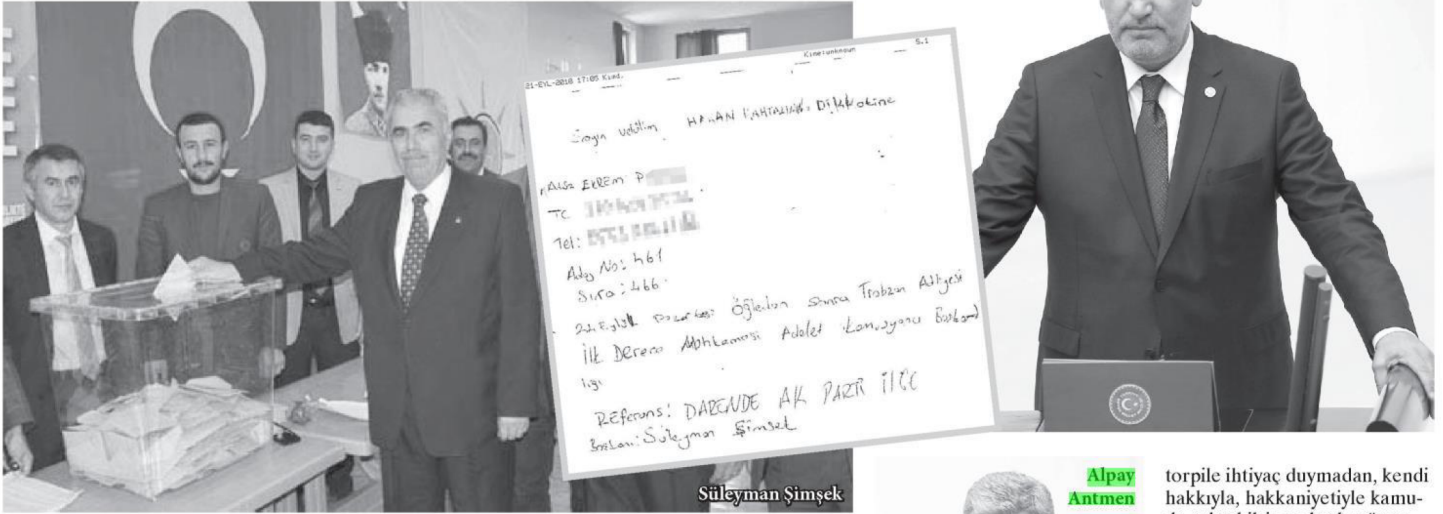 21-EYL-2018 17:05 Kimd.
Kime:unknown
S.1
Sayın vekilim HAKAN Dikkatine
EKREM P
TC
Tel:
Aday No: 461
Sıra: 466
Öğleden Sonra Trabzon Adliyesi
İlk Derece Mahkemesi Adalet Komisyonu Başkanl
lığı
REferans: DARENDE AK PARTİ İlÇE
Başkanı: Süleyman Şimşek
Süleyman Şimşek
Alpay
Antmen
torpile ihtiyaç duymadan, kendi
hakkıyla, hakkaniyetiyle kamu-